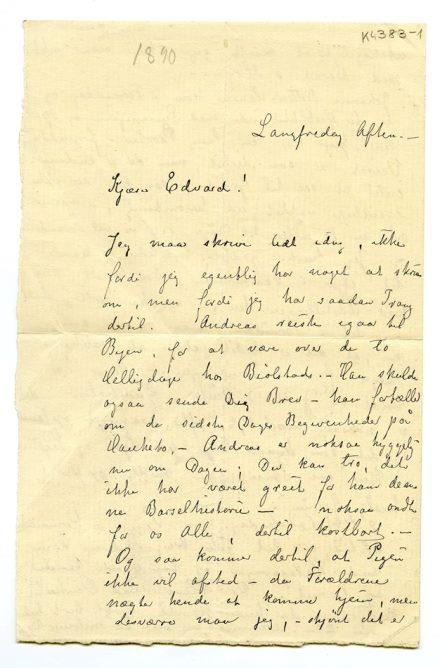 K4383-1
1890
Langfredag Aften. –
Kjære Edvard!
Jeg maa skrive lidt idag, ikke
fordi jeg egentlig har noget at skrive
om, men fordi jeg har saadan Trang
dertil. Andreas reiste igaar til
Byen, for at være over de to
Helligdage hos Biölstads. – Han skulde
ogsaa sende Dig Brev – han fortæller
om de sidste Dages Begivenheder på
Hankebo, – Andreas er noksaa hyggelig
nu om Dagen; Du kan tro, det
ikke har været greit for ham den-
ne Barselhistorie – noksaa ondt
for os Alle, dertil kostbart. –
Og saa kommer dertil, at Pigen
ikke vil afsted – da Forældrene
nægter hende at komme hjem, men
desværre maa jeg, – skjønt det er